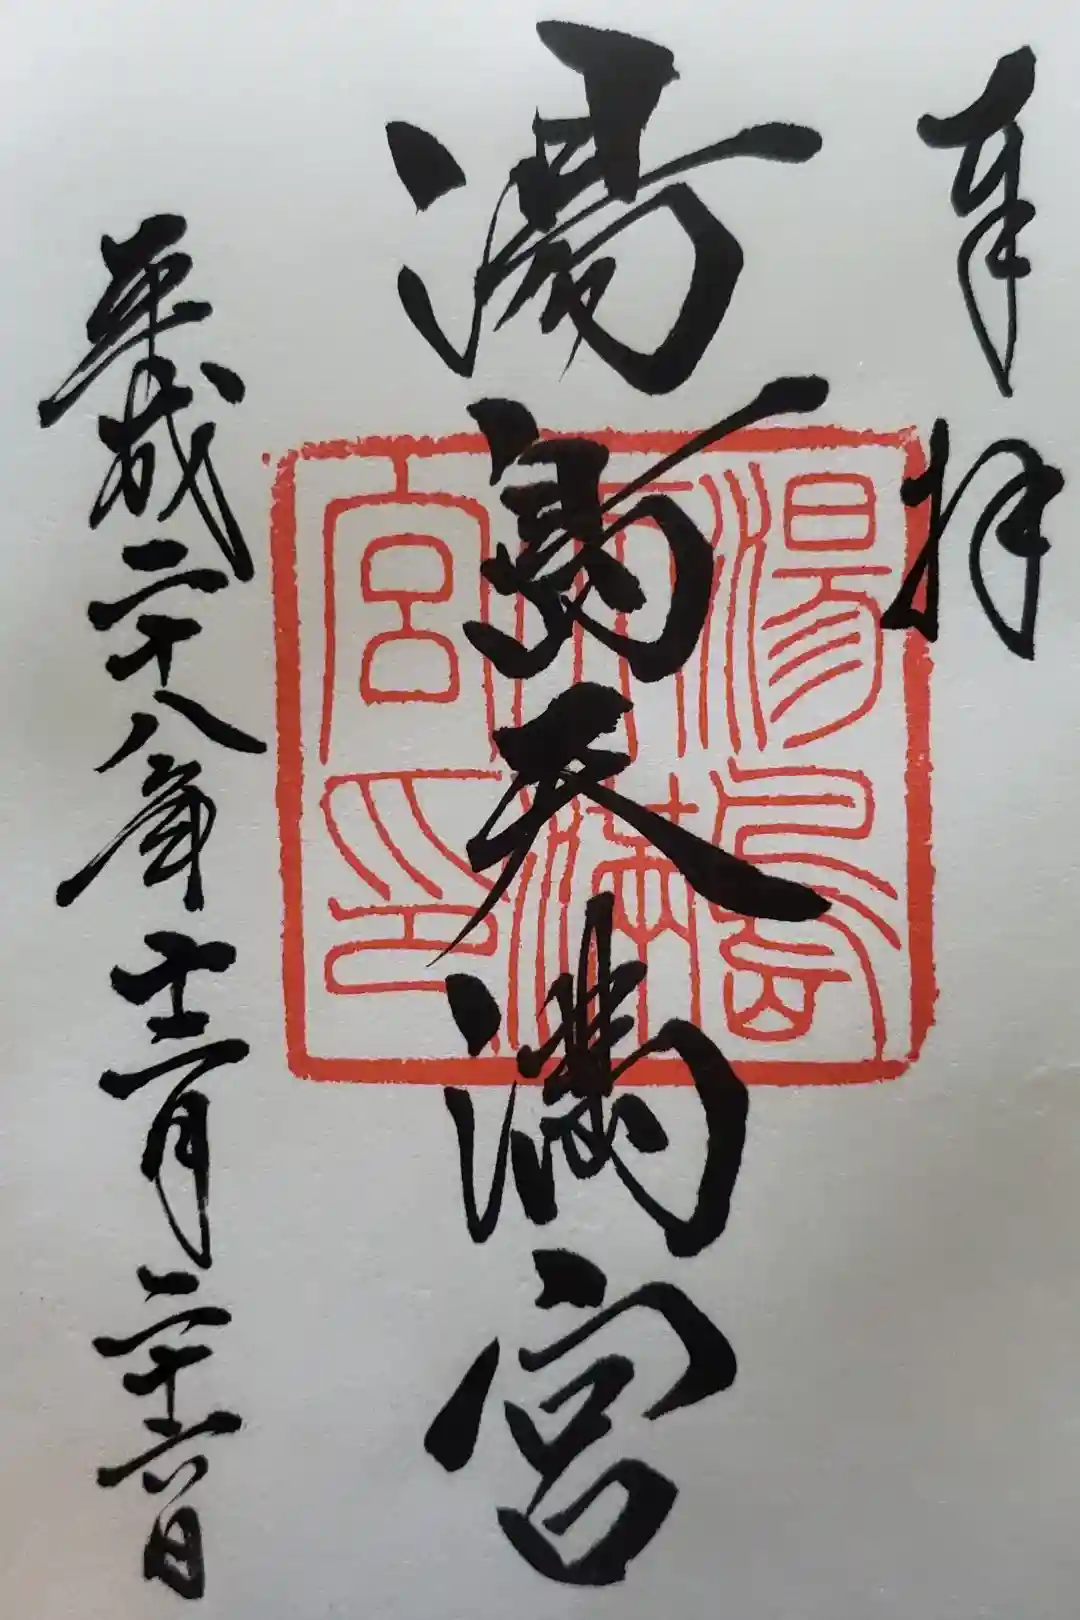 奉拝
湯島天満宮
平成二十八年十二月二十六日
湯島
天満
宮印